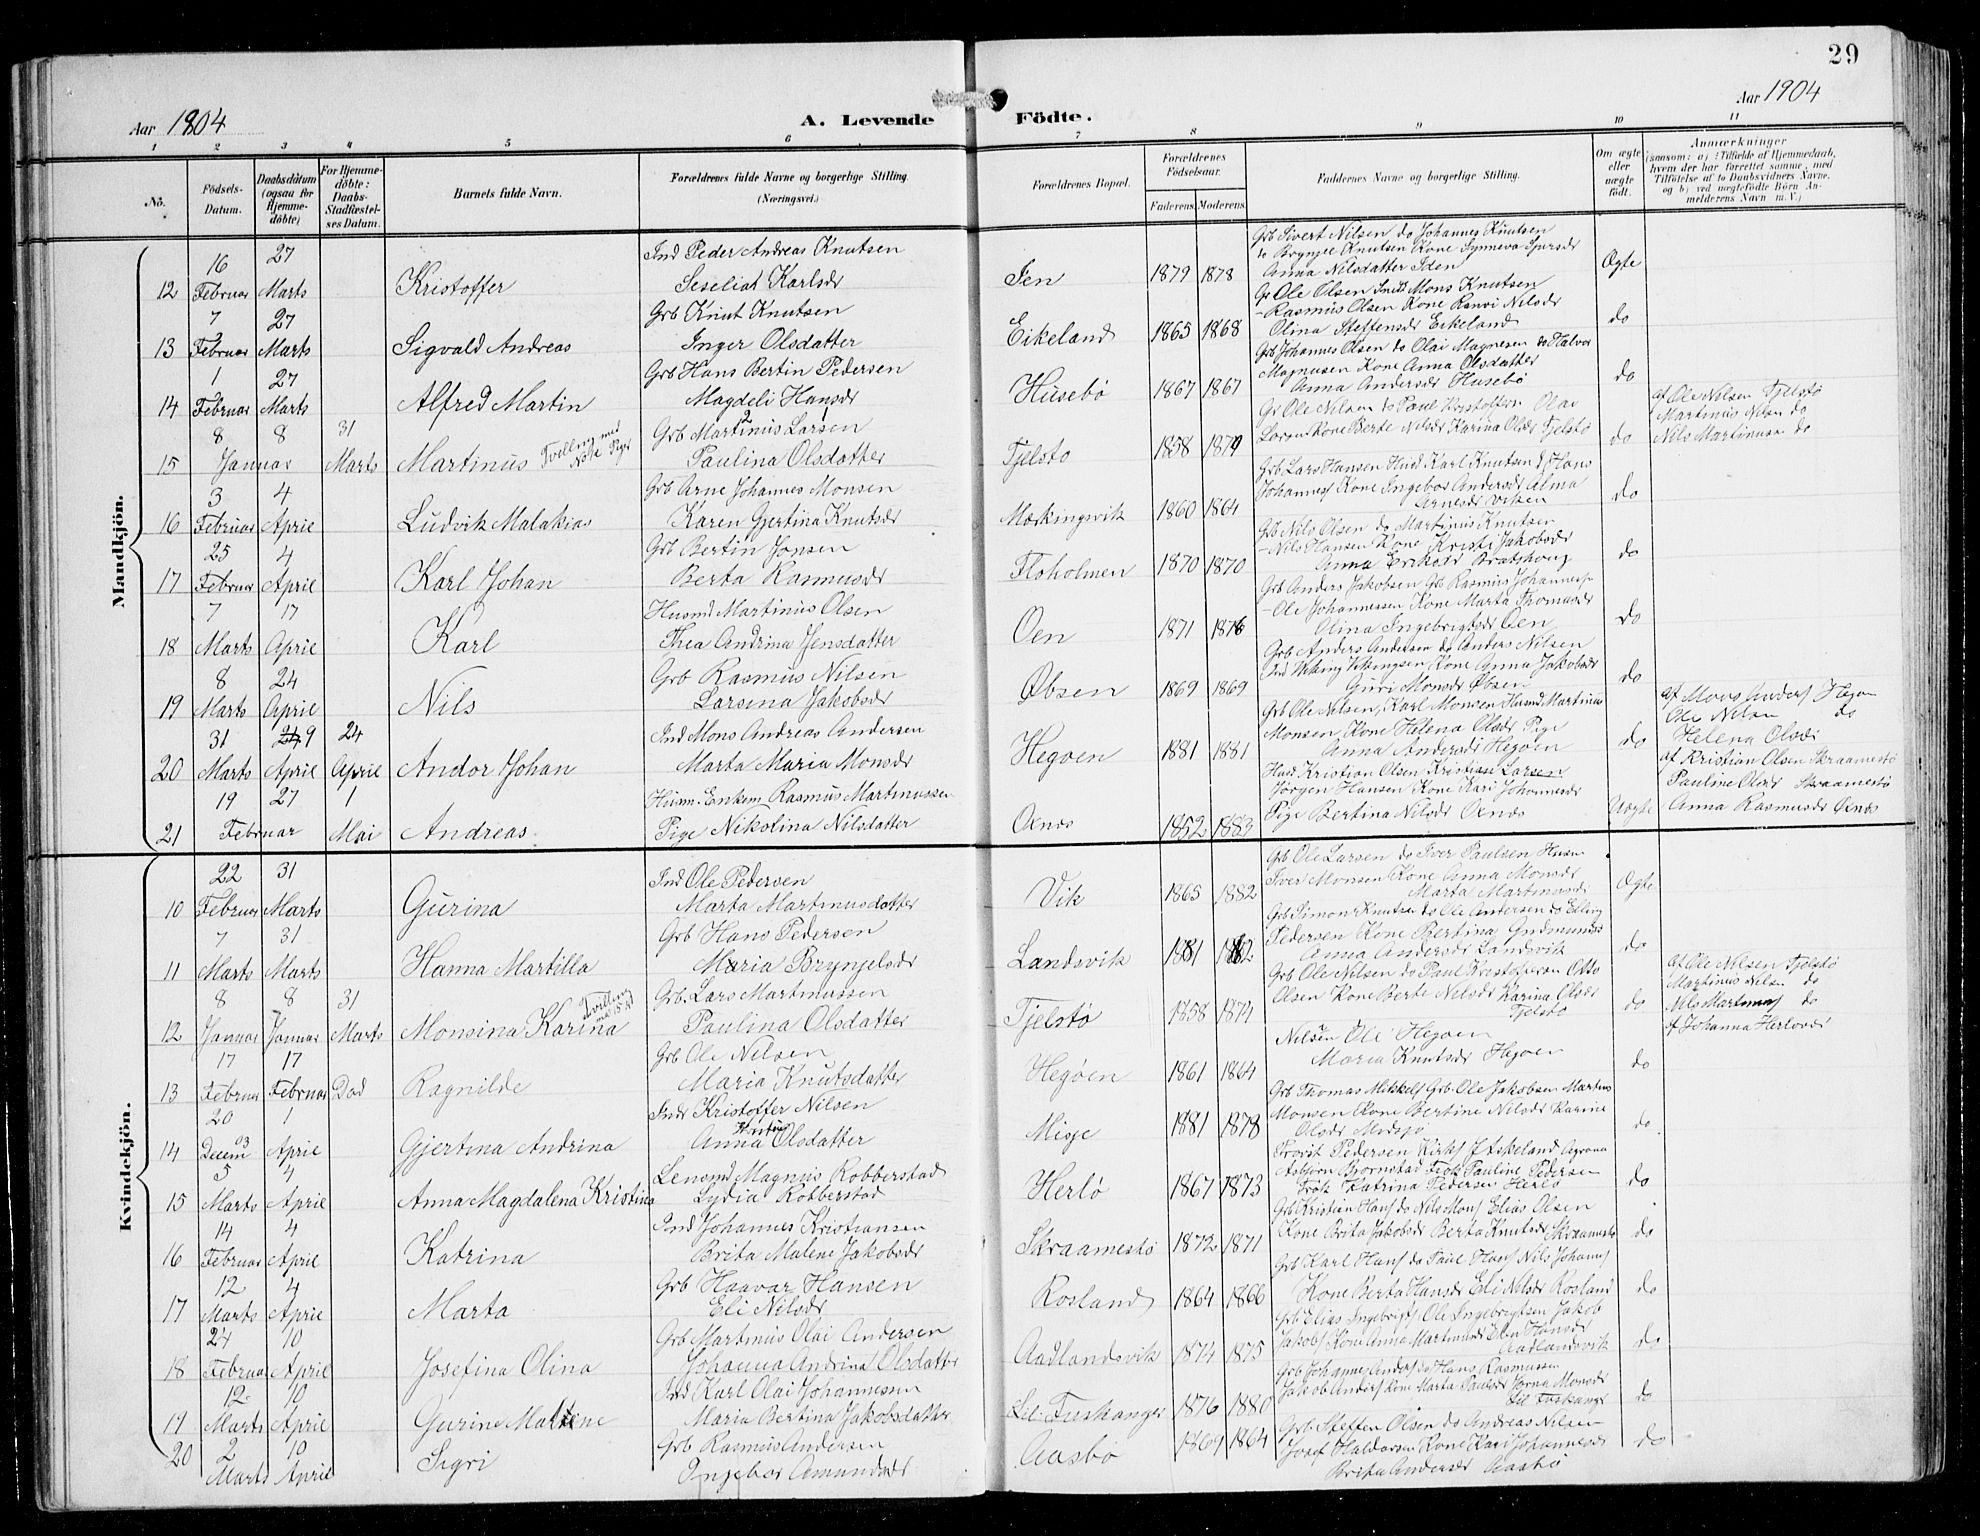 29
Aar 1904
A. Levende Födte.
Aar 1904
1 2 3 4 5 6 7 8 9 10 11
No.
Födsels-Datum.
Daabsdatum (ogsaa for Hjemme-döbte)
For Hjemme-döbte: Daabs-Stadfæstel-ses Datum.
Barnets fulde Navn.
Forældrenes fulde Navne og borgerlige Stilling. (Næringsvei.)
Forældrenes Bopæl.
Forældrenes Födselsaar.
Faderens. Moderens.
Faddernes Navne og borgerlige Stilling.
Om ægte eller uægte födt.
Anmærkninger
(saasom: a) i Tilfælde af Hjemmedaab, hvem der har forrettet samme, med Tilföielse af to Daabsvidners Navne, og b) ved uægtefödte Börn Anmelderens Navn m. V.)
Mandkjön.
12 16 Februar 27 Marts Kristoffer Ind Peder Andreas Knutsen
Seseliat Karlsdr Ien 1879 1878 Grb Sivert Nilsen do Johannes Knutsen
do Brynjel Knutsen Kone Synneva Ivarsdr
Anna Nilsdatter Iden Ægte
13 7 Februar 27 Marts Sigvald Andreas Grb Knut Knutsen
Inger Olsdatter Eikeland 1865 1868 Gr Ole Olsen Inds Mons Knutsen
- Rasmus Olsen Kone Ranvi Nilsdr
Olina Steffensdr Eikeland do
14 1 Februar 27 Marts Alfred Martin Grb Hans Bertin Pedersen
Magdeli Hansdr Husebö 1867 1867 Grb Johannes Olsen do Olai Magnesen do Halvor
Magnusen Kone Anna Olsdatter
Anna Andersdr Husebö do
15 8 Januar 8 31 Marts Martinus Tvilling med No 12 Piger Grb Martinus Larsen
Paulina Olsdatter Tjelsto 1858 1874 Gr Ole Nilsen do Paul Kristoffern Olai
Larsen Kone Berte Nilsdr Karina Olsdr Tjelstö do af Ole Nilsen Tjelstö
Martinus Nilsen do
Nils Martinusn do
16 3 Februar 4 April Ludvik Malakias Grb Arne Johannes Monsen
Karen Gjertina Knutsdr Mærkingsvik 1860 1864 Grb Lars Hansen Husd Karl Knutsen do Hans
Johannesf Kone Ingebor Andersdr Alma
Arnesdr Viksen do
17 25 Februar 4 April Karl Johan Grb Bertin Jonsen
Berta Rasmusdr Floholmen 1870 1870 Grb Nils Olsen do Martinus Knutsen
- Nils Hansen Kone Kristi Jakobsdr
Anna Eriksdr Bratshoug do
18 7 Marts 17 April Karl Husmd Martinus Olsen
Thea Andrina Jensdatter Oen 1871 1876 Grb Anders Jakobsen Grb Rasmus Johannesn
- Ole Johannessen Kone Marta Thomasdr
Olina Ingebrigtsdr Oen do
19 8 Marts 24 April Nils Grb Rasmus Nilsen
Larsena Jakobsdr Øbsen 1869 1869 Grb Anders Andersen do Anders Nilsen
Ind Viking Vikingsen Kone Anna Jakobsdr
Guri Monsdr Øbsen do
20 31 Marts 9 April 24 April Andor Johan Ind Mons Andreas Andersen
Marta Maria Monsdr Hegöen 1881 1881 Grb Ole Nilsen, Karl Monsen Husmd Martinus
Monsen Kone Helena Olsdr Pige
Anna Andersdr Hegöen do af Mons Andersf Hegöen
Ole Nilsen do
Helena Olsdr
21 19 Februar 27 1 Mai Andreas Husm. Enkem. Rasmus Martinussen
Pige Nikolina Nilsdatter Oxnes 1852 1883 Husd Kristian Olsen Kristiasi Larsen
Jörgen Hansen Kone Kari Johannesdr
Pige Bertina Nilsdr Oxnes Uægte af Kristian Olsen Skraamestö
Pauline Olsdr Skraamestö
Anna Rasmusdr Øxnes
Kvindekjön.
10 22 Februar 31 Marts Gurina Ind Ole Pedersen
Marta Martinusdatter Vik 1865 1882 Grb Ole Larsen do Iver Paulsen Husm
Iver Monsen Kone Anna Monsdr
Marta Martinusdr Ægte
11 7 Marts 31 Marts Hanna Martilla Grb Hans Pedersen
Maria Brynjelsdr Landsvik 1881 1882 Grb Simon Knutsen do Ole Andersen do Elling
Pedersen Kone Bertina Gudmunds
Anna Andersdr Landsvik do
12 8 Januar 8 Januar 31 Marts Monsina Karina Tvilling med 15 Grb. Lars Martinussen
Paulina Olsdatter Tjelstø 1858 1874 Grb Ole Nilsen do Paul Kristoffersen Otto
Olsen Kone Berte Nilsdr Karina Olsdr
Tjelstö do af Ole Nilsen Tjelstö
Martinus Nilsen do
Nils Martinusf do
13 17 Februar 17 Februar Död Ragnilde Grb Ole Nilsen
Maria Knutsdatter Hegöen 1861 1864 Nilsen Ole Hegöen
Maria Knutsdr Hegöen do af Johanna Herlövdr
14 20 Decem 03 1 April Gjertina Andrina Indr Kristoffer Nilsen
Anna Olsdatter Misje 1881 1878 Grb Thomas Mikkelf Grb Ole Jakobsen Martins
Monsen Kone Bertine Nilsdr Karine
Olsdr do
15 5 Marts 4 April Anna Magdalena Kristina Lensmd Magnus Robberstad
Lydia Robberstad Herlö 1867 1873 Provst Pedersen Kirks J Askeland Agronom
Asbjörn Bjornstad Frök Pauline Pedersen
Frök Katrina Pedersen Herlö do
16 14 Februar 4 April Katrina Ind Johannes Kristiansen
Brita Malene Jakobsdr Skraamestö 1872 1871 Grb Kristian Hansf do Nils Monsf Elias Olsen
Kone Brita Jakobsdr Berta Knutsdr Skraamestö do
17 12 Marts 4 April Marta Grb Haavar Hansen
Eli Nilsdr Rosland 1864 1866 Grb Karl Hansf do Paul Hansf Nils Johansf
Kone Berta Hansdr Eli Nilsdr Rosland do
18 24 Februar 10 April Josefina Olina Grb Martinus Olai Andersen
Johanna Andrina Olsdatter Aadlandsvik 1874 1875 Grb Elias Ingebrigtf Ole Ingebrigtsen Jakob
Jakobf Kone Anna Martinusdr Elen Hansdr
Aadlandsvik do
19 12 Marts 10 April Gurine Maltene Ind Karl Olai Johannessen
Maria Bertina Jakobsdatter Lil-Fuskanger 1876 1880 Grb Johannes Andersf do Hans Rasmussen
Jakob Andersf Kone Marta Paulsdr Jorna Monsdr
Lil Foskanger do
20 2 Marts 10 April Sigri Grb Rasmus Andersen
Ingebor Amundsdr Aasbö 1869 1864 Grb Steffen Olsen do Andreas Nilsen
Josef Haldorsen Kone Kari Johannesdr
Brita Andersdr Aasbö do